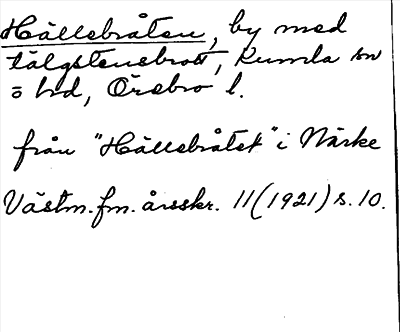 Hällebråten, by med
tälgstensbrott, Kumla sn
ö hd, Örebro l.
från "Hällebråtet" i Närke
Västm. fm. årsskr. 11 (1921) s. 10.